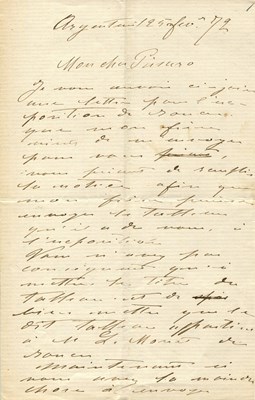 Argenteuil 25 fév. 72
Mon cher Pissaro
Je vous envoie ci joint
une lettre pour l'ex-
position de Rouen
que mon frère
vient de m'envoyer
pour vous
vous priant de remplir
la notice afin que
mon frère puisse
envoyer le tableau
qu'il a de vous à
l'exposition.
Vous n'avez pas
qu'à
mettre le titre du
tableau et de
bien mettre que le
dit tableau appartient
à Mr L. Monet de
Rouen
Maintenant si
vous avez la moindre
chose à envoyer